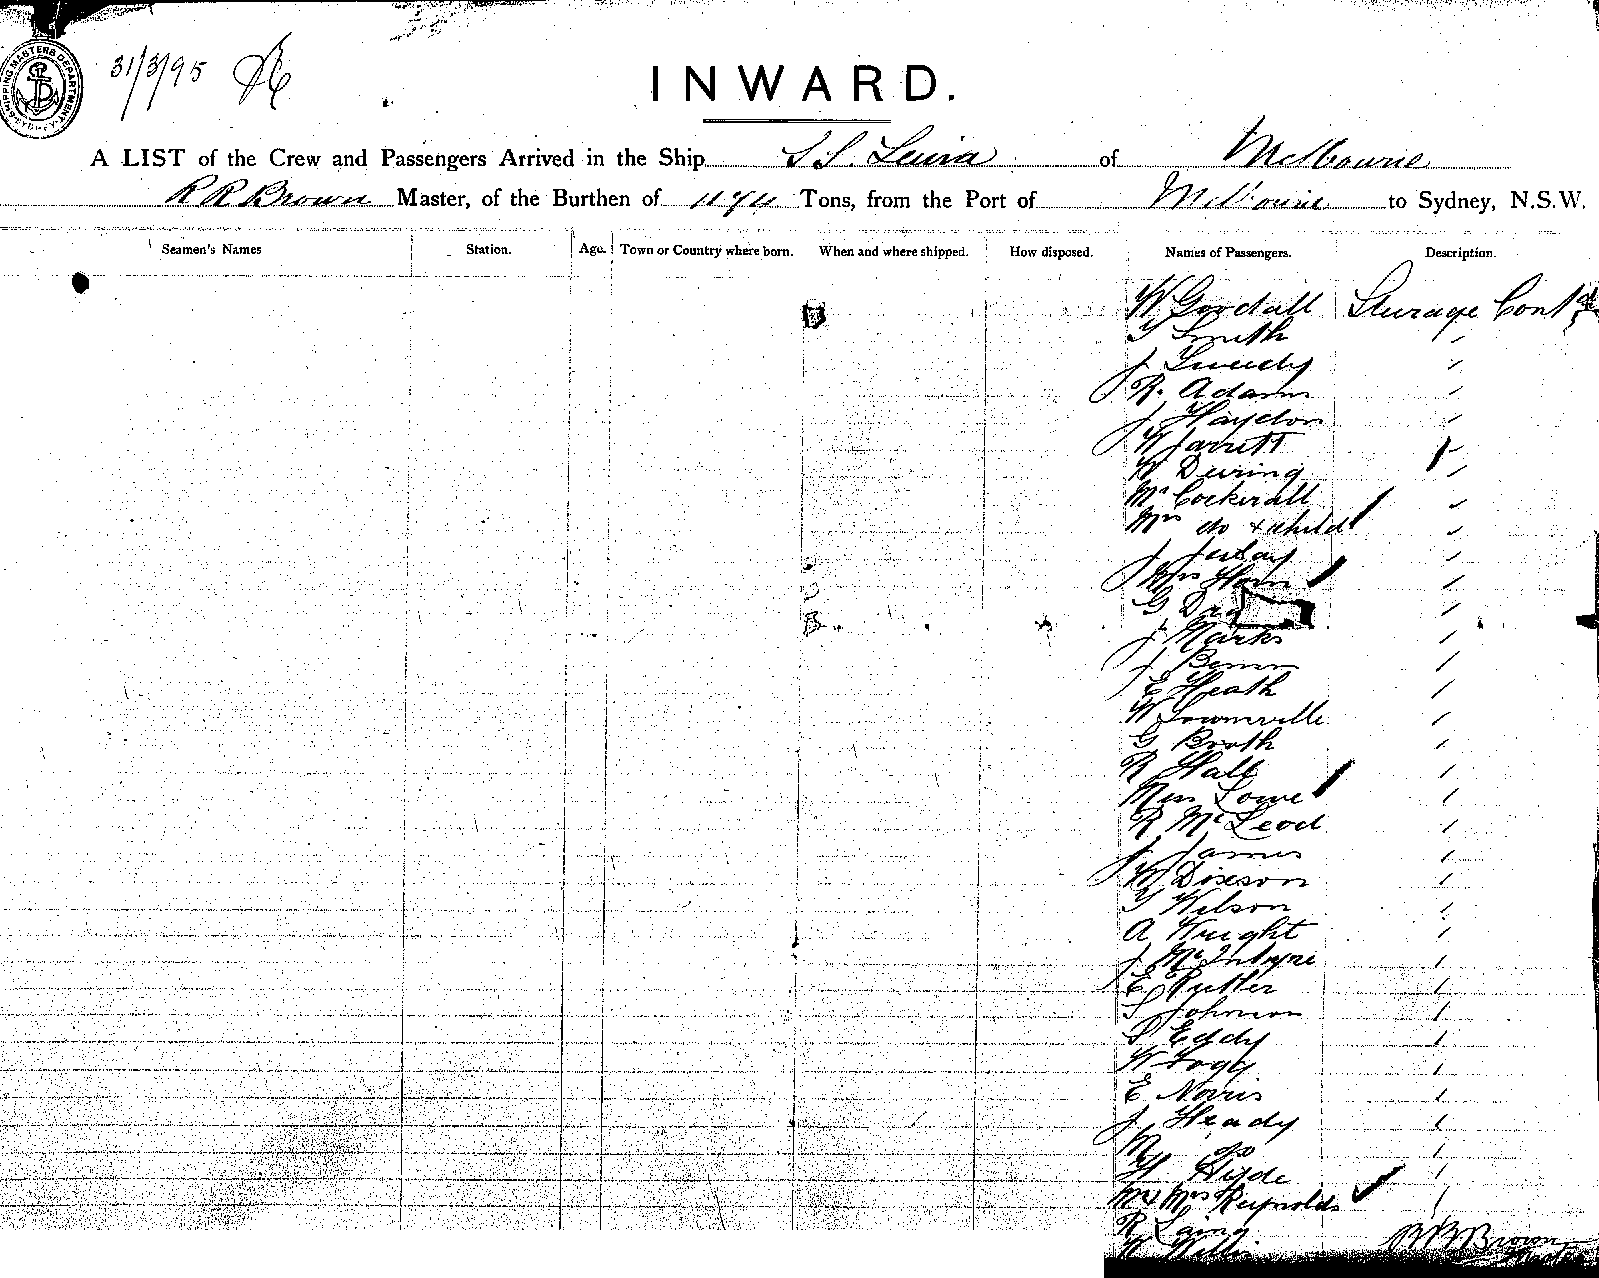 SHIPPING MASTERS DEPARTMENT SYDNEY
31/3/95
INWARD.
A LIST of the Crew and Passengers Arrived in the Ship S.S. of Melbourne
R R Brown Master, of the Burthen of Tons, from the Port of Melbourne to Sydney, N.S.W.
Seamen's Names Station. Age. Town or Country where born. When and where shipped. How disposed. Names of Passengers. Description.
W Goodall Steerage Cont
T Smith
J
R. Adams
J Haydon
W Jarrett
W
Mr Cockerall
Mrs do + child
J
Mrs Horn
G
J Marks
J
E Heath
W
G Booth
R Hall
Lowe
R McLeod
J James
W Dixson
T Wilson
A Wright
J McIntyre
E
S Johnson
S Eddy
W Fogg
E Norris
J Heady
M do
H Hyde
Mr & Mrs Reynolds
R Laing
W Willis
R R Brown
Master